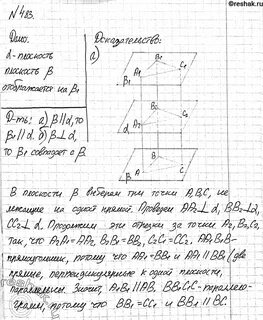 №483.
Дано: Доказательство:
α-плоскость а)
плоскость β
отображается на β₁
B₁ C₁ A₁ β₁
Д-ть: а) β∥α, то
β₁∥α. б) β⊥α,
то β₁ совпадает с β.
A₂ B₂ C₂ α
B A C β
В плоскости β выберем три точки A, B, C, не
лежащие на одной прямой. Проведем AA₂⊥α, BB₂⊥α,
CC₂⊥α. Продолжим эти отрезки за точки A₂, B₂, C₂,
так, что A₂A₁=AA₂, B₂B₁=BB₂, C₂C₁=CC₂. AA₁B₁B-
прямоугольник, потому что AA₁=BB₁ и AA₁∥BB₁ (две
прямые, перпендикулярные к одной плоскости,
параллельны. Значит, A₁B₁∥AB. BB₁C₁C-параллело-
грамм, потому что BB₁=CC₁ и BB₁∥BC.
reshak.ru